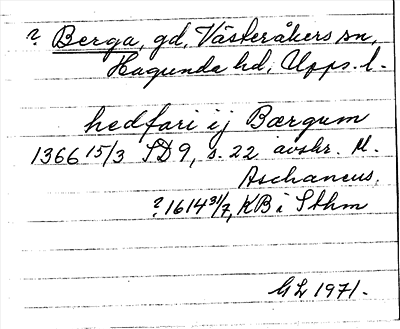 ? Berga, gd, Västeråkers sn,
Hagunda hd, Upps. l.
hedfari ij Bærgum
1366 15/3 SD 9, s. 22 avskr. M.
Aschaneus,
? 1614 31/7, KB i Sthm
GL 1971.